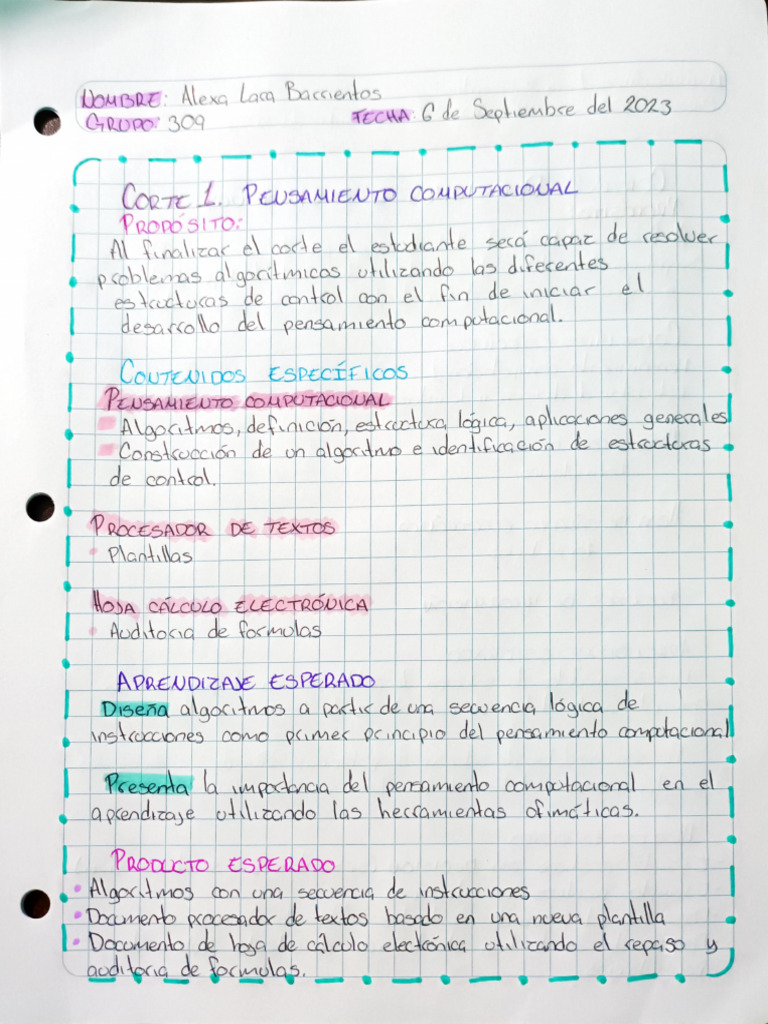 NOMBRE: Alexa Lara Barrientos
GRUPO: 309 FECHA: 6 de Septiembre del 2023
CORTE 1. PENSAMIENTO COMPUTACIONAL
PROPÓSITO:
Al finalizar el corte el estudiante será capaz de resolver
problemas algorítmicos utilizando las diferentes
estructuras de control con el fin de iniciar el
desarrollo del pensamiento computacional.
CONTENIDOS ESPECÍFICOS
PENSAMIENTO COMPUTACIONAL
Algoritmos, definición, estructura lógica, aplicaciones generales
Construcción de un algoritmo e identificación de estructuras
de control.
PROCESADOR DE TEXTOS
• Plantillas
HOJA CÁLCULO ELECTRÓNICA
• Auditoria de formulas
APRENDIZAJE ESPERADO
Diseña algoritmos a partir de una secuencia lógica de
instrucciones como primer principio del pensamiento computacional
Presenta la importancia del pensamiento computacional en el
aprendizaje utilizando las herramientas ofimáticas.
PRODUCTO ESPERADO
• Algoritmos con una secuencia de instrucciones
• Documento procesador de textos basado en una nueva plantilla
• Documento de hoja de cálculo electrónica utilizando el repaso y
auditoria de formulas.